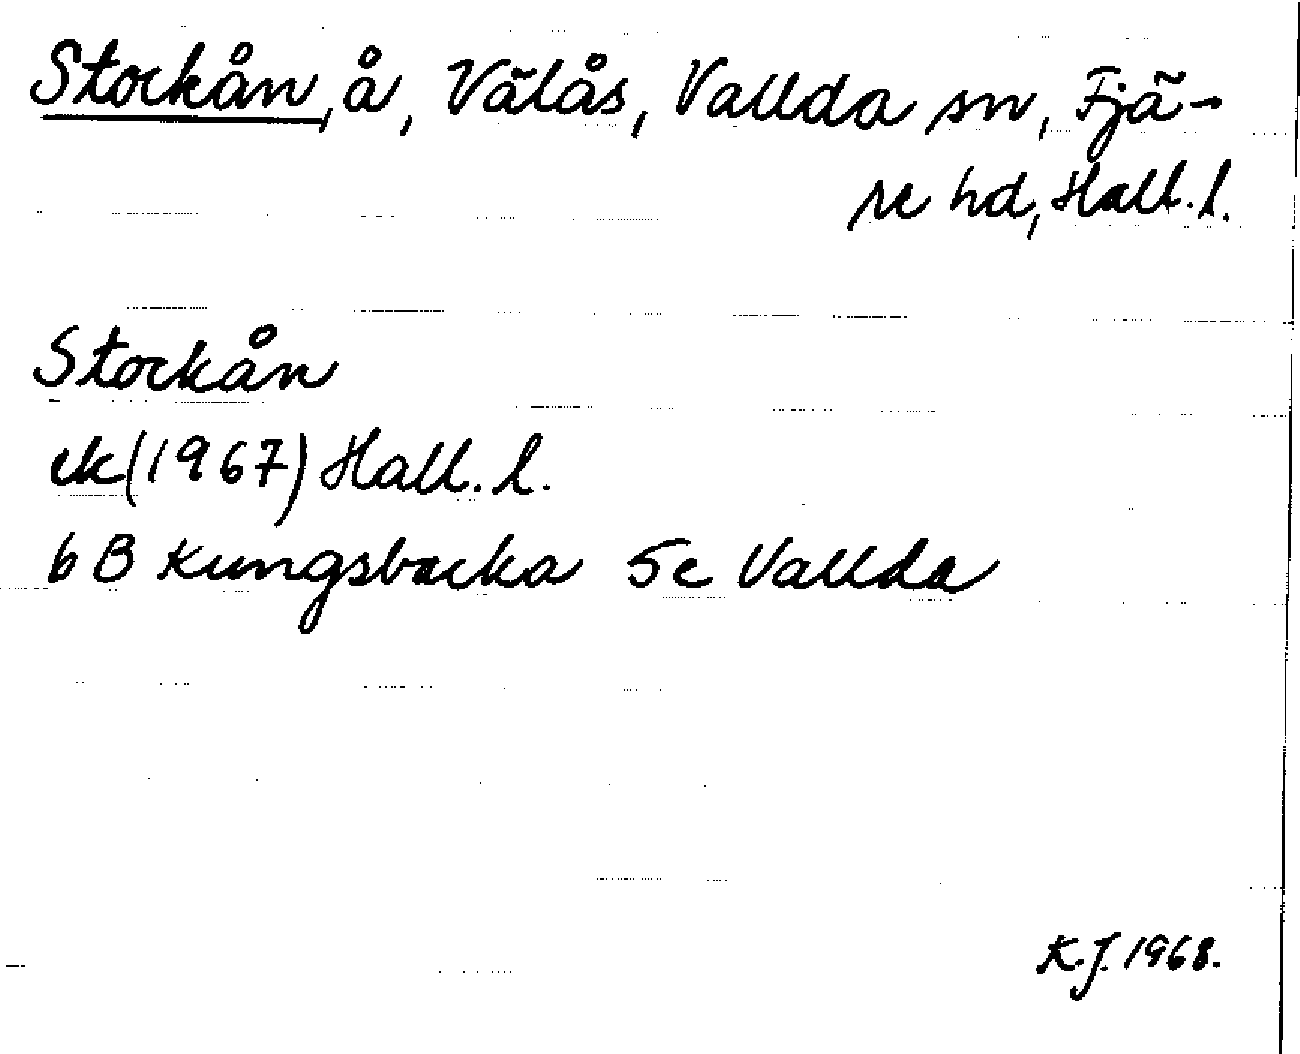 Stockån, å, Välås, Vallda sn, Fjä-
re hd, Hall. l.
Stockån
ek (1967) Hall. l.
6 B Kungsbacka 5c Vallda
K.J. 1968.